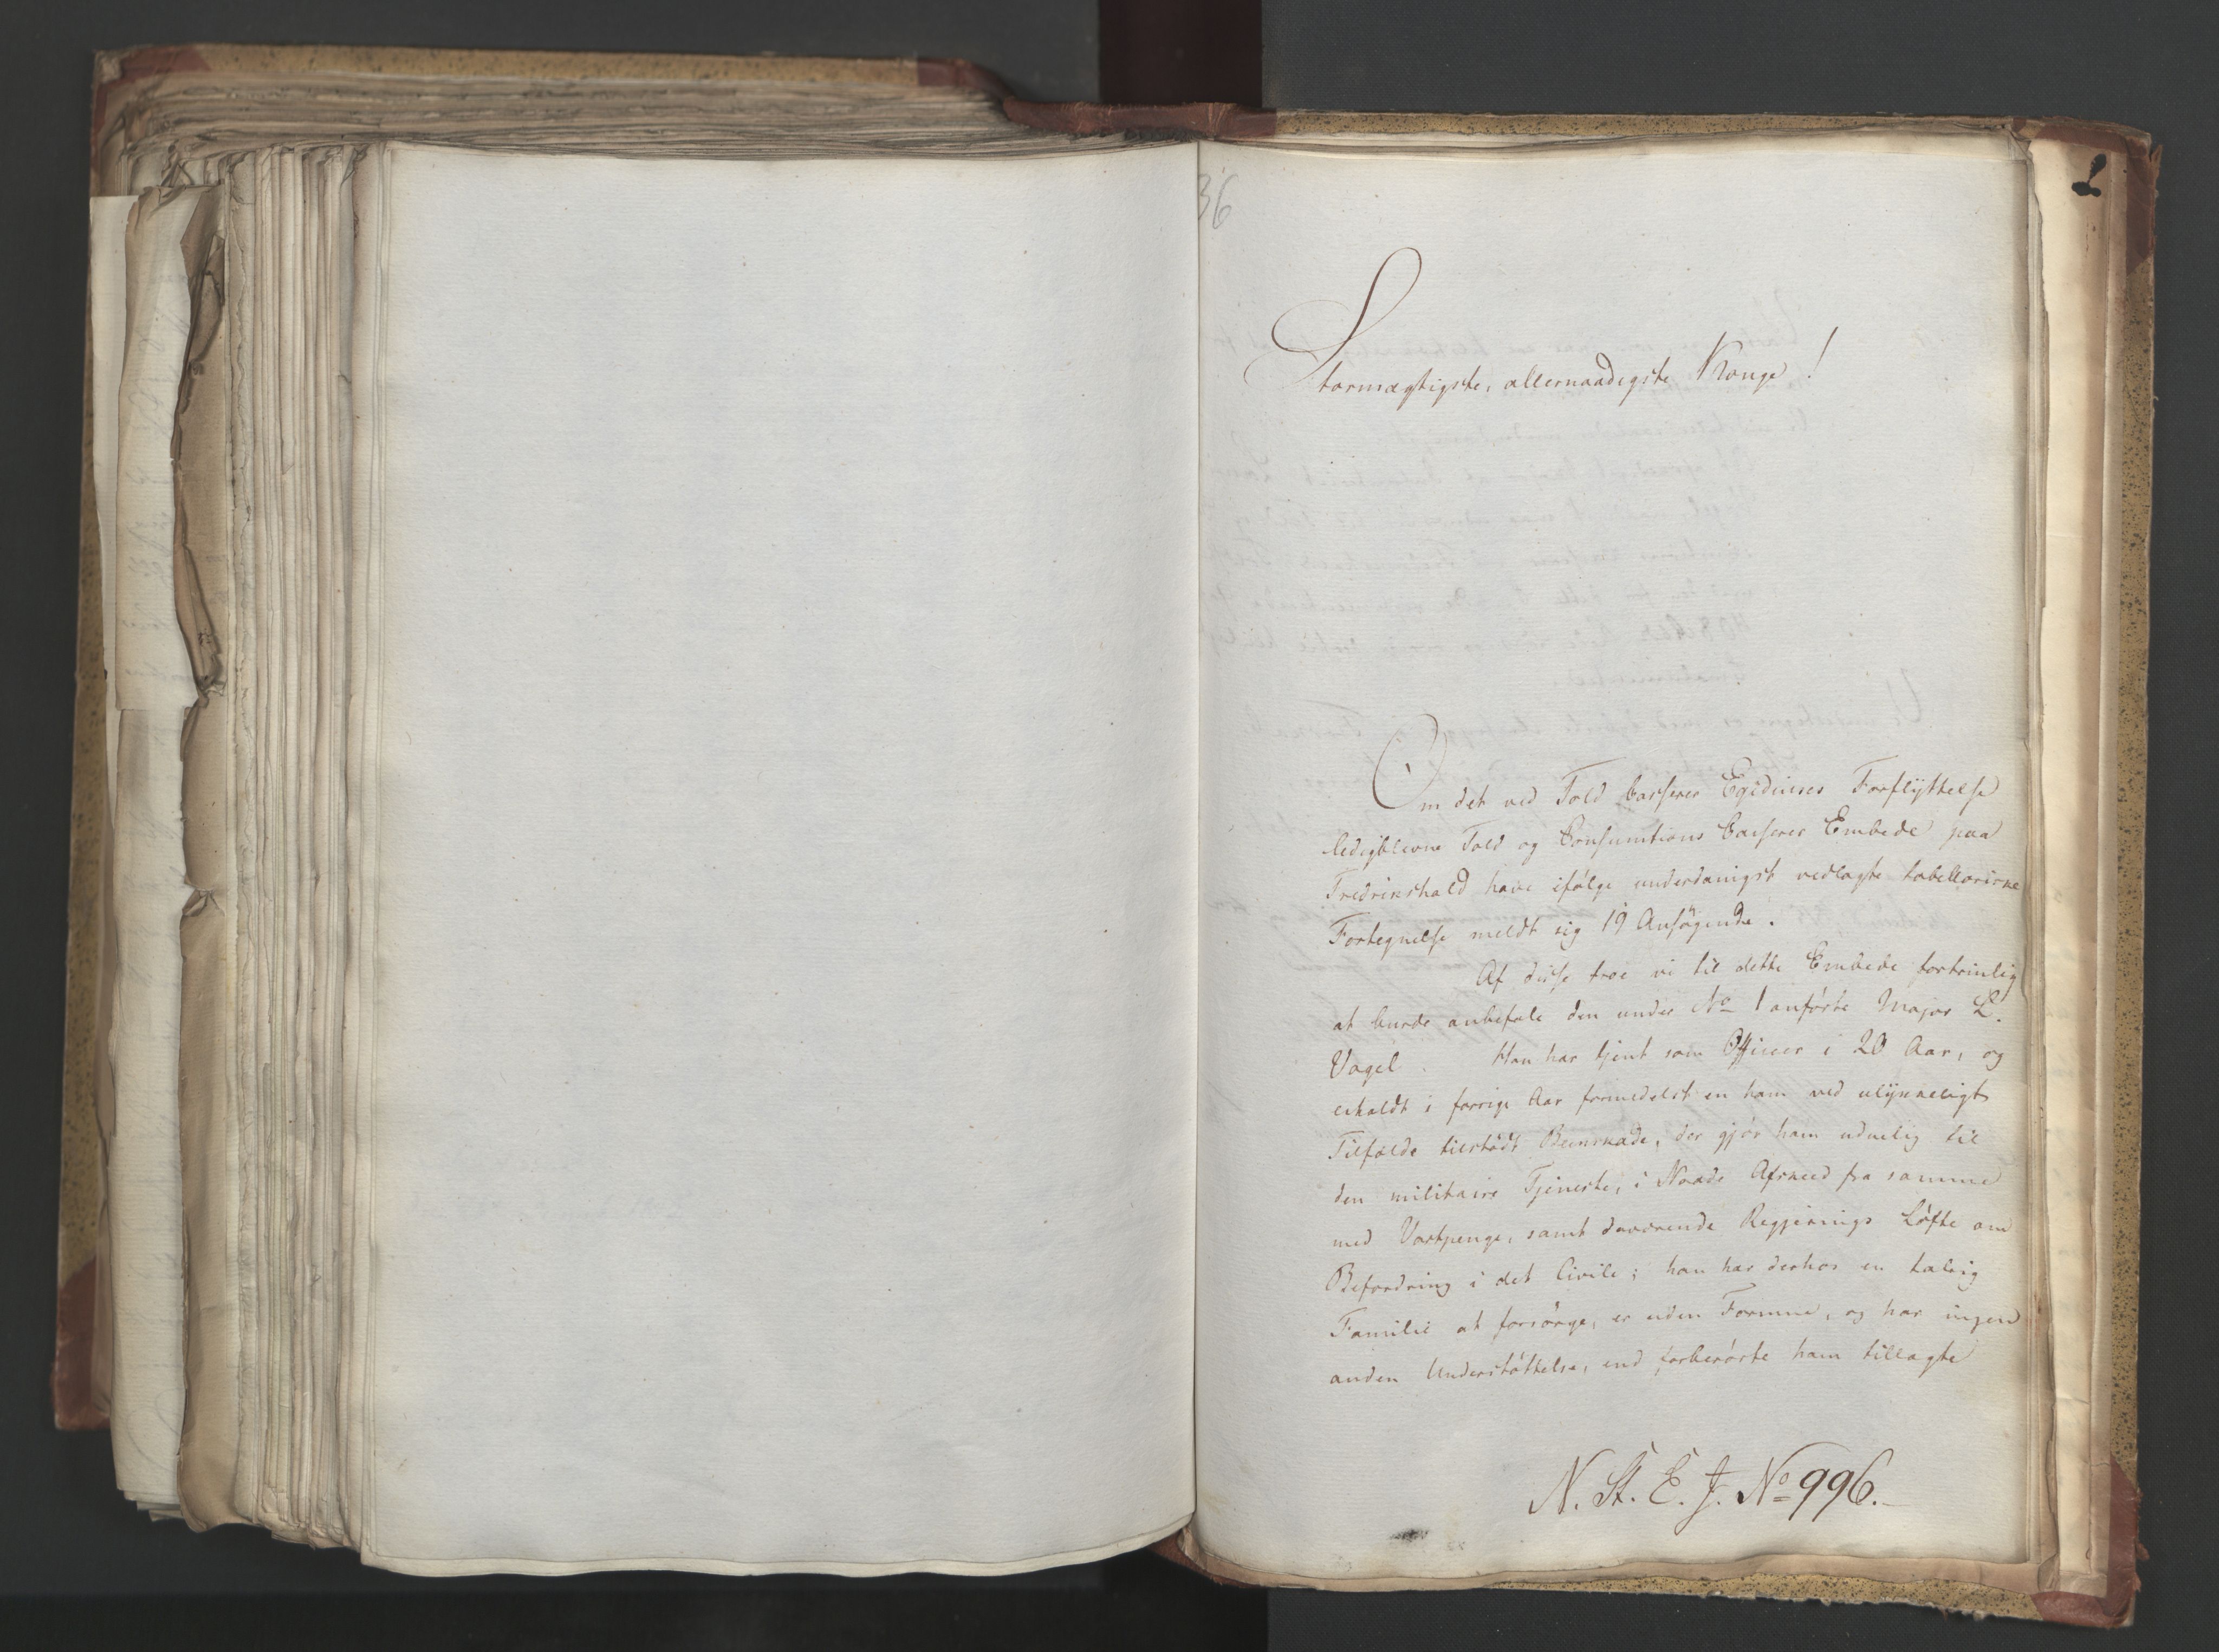 36
Stormægtigste, allernaadigste Konge!
Om det ved Told Casserer Egidiuses Forflyttelse
ledigblevne Told og Consumtions Casserer Embede paa
Fredrikshald have ifølge underdanigst vedlagte tabellariske
Fortegnelse meldt sig 19 Ansøgende.
Af disse troe vi til dette Embede fortrinlig
at burde anbefale den under No 1 anførte Major L.
Vogel. Han har tjent som Officeer i 20 Aar, og
erholdt i forrige Aar formedelst en ham ved ulykkeligt
Tilfælde tilstødt Beenskade, der gjør ham uduelig til
den militaire Tjeneste, i Naade Afskeed fra samme
med Vartpenge, samt daværende Regjerings Løfte om
Befordring i det Civile; han har derhos en talrig
Familie at forsørge, er uden Formue, og har ingen
anden Understøttelse, end forberørte ham tillagte
N. St. E. J. No 996.